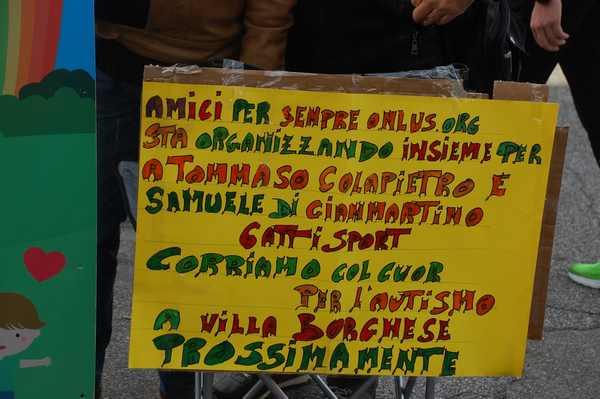 AMICI PER SEMPRE ONLUS.ORG
STA ORGANIZZANDO INSIEME PER
A TOMMASO COLAPIETRO E
SAMUELE DI GIAMMARTINO
GATTI SPORT
CORRIAMO COL CUOR
PER L'AUTISMO
A VILLA BORGHESE
TROSSIMAMENTE